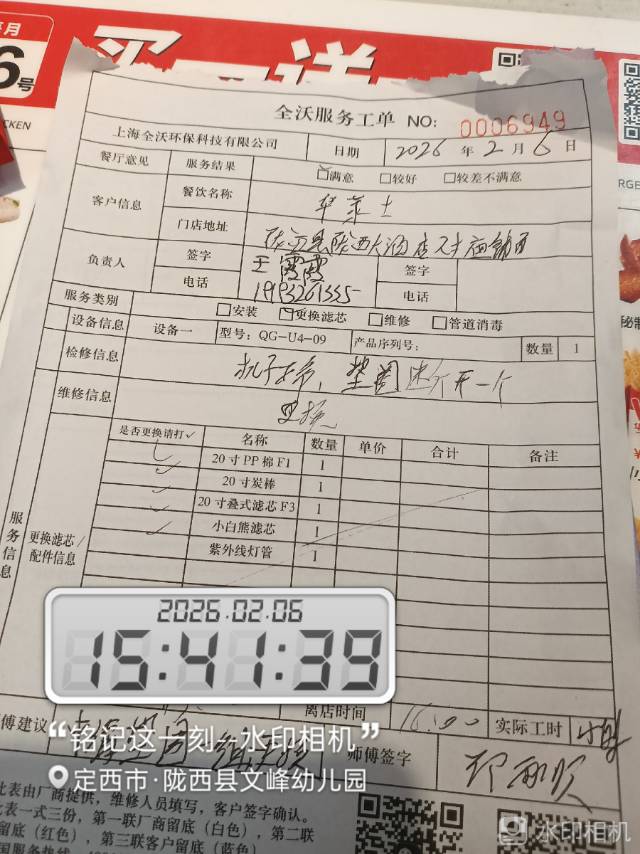 6号
买一送
CKEN
全沃服务工单 NO: 0006949
上海全沃环保科技有限公司 日期 2026 年 2 月 6 日
餐厅意见 服务结果 满意 较好 较差不满意
客户信息 餐饮名称 华莱士
门店地址
负责人 签字 王霞霞 签字
电话 电话
服务类别 安装 更换滤芯 维修 管道消毒
设备信息 设备一 型号: QG-U4-09 产品序列号: 数量 1
检修信息
维修信息 更换
是否更换请打✓ 名称 数量 单价 合计 备注
20寸PP棉F1 1
20寸炭棒 1
20寸叠式滤芯F3 1
小白熊滤芯 1
紫外线灯管 1
服务信息
更换滤芯/配件信息
2026.02.06
15:41:39
离店时间 16:00 实际工时
傅建议 师傅签字
“铭记这一刻-水印相机”
定西市·陇西县文峰幼儿园
此表由厂商提供，维修人员填写，客户签字确认。
表一式三份，第一联厂商留底（白色），第二联
留底（红色），第三联客户留底（蓝色）
国服务热线
水印相机